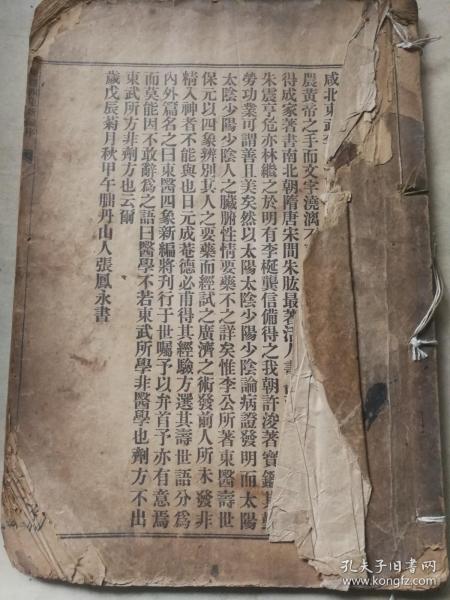 咸北東武
農黃帝之手而文字澆漓
得成家著書南北朝隋唐宋間朱肱最著活人書
朱震亨危亦林繼之於明有李梴龔信備得之我朝許浚著寶鑑其
勞功業可謂善且美矣然以太陽太陰少陽少陰論病證發明而太陽
太陰少陽少陰人之臟腑性情要藥不之詳矣惟李公所著東醫壽世
保元以四象辨別其人之要藥而經試之廣濟之術發前人所未發非
精入神者不能與也日元成菴德必甫得其經驗方選其壽世語分爲
內外篇名之曰東醫四象新編將刊行于世囑予以弁首予亦有意焉
而莫能因不敢辭爲之語曰醫學不若東武所學非醫學也劑方不出
東武所方非劑方也云爾
歲戊辰菊月秋甲午朏丹山人張鳳永書
孔夫子旧书网
www.kongfz.com